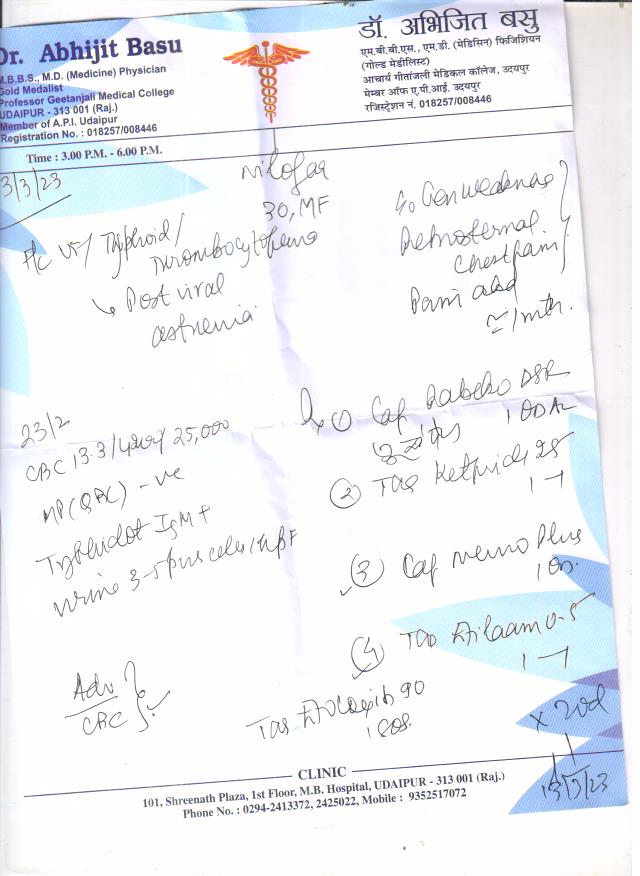 Dr. Abhijit Basu
M.B.B.S., M.D. (Medicine) Physician
Gold Medalist
Professor Geetanjali Medical College
UDAIPUR - 313 001 (Raj.)
Member of A.P.I. Udaipur
Registration No. : 018257/008446
Time : 3.00 P.M. - 6.00 P.M.
डॉ. अभिजित बसु
एम.बी.बी.एस., एम.डी. (मेडिसिन) फिजिशियन
(गोल्ड मेडीलिस्ट)
आचार्य गीतांजली मेडिकल कॉलेज, उदयपुर
मेम्बर ऑफ ए.पी.आई. उदयपुर
रजिस्ट्रेशन नं. 018257/008446
3/3/23
Nilofar
30, MF
Typhoid /
Thrombocytopenia
Post viral
asthenia
Gen weakness
Retrosternal
Chest pain
Pain abd
≃ 1 mth.
23/2
CBC 13.3 / 25,000
MP (QBC) - ve
Typhidot IgM +
Urine 3-5 pus cells / HPF
Adv
CBC
① Cap DSR
1 OD
② Tab 25
1 - 1
③ Cap Plus
④ Tab 0.5
1 - 1
Tab 90
1 SOS.
x 20d
13/3/23
CLINIC
101, Shreenath Plaza, 1st Floor, M.B. Hospital, UDAIPUR - 313 001 (Raj.)
Phone No. : 0294-2413372, 2425022, Mobile : 9352517072